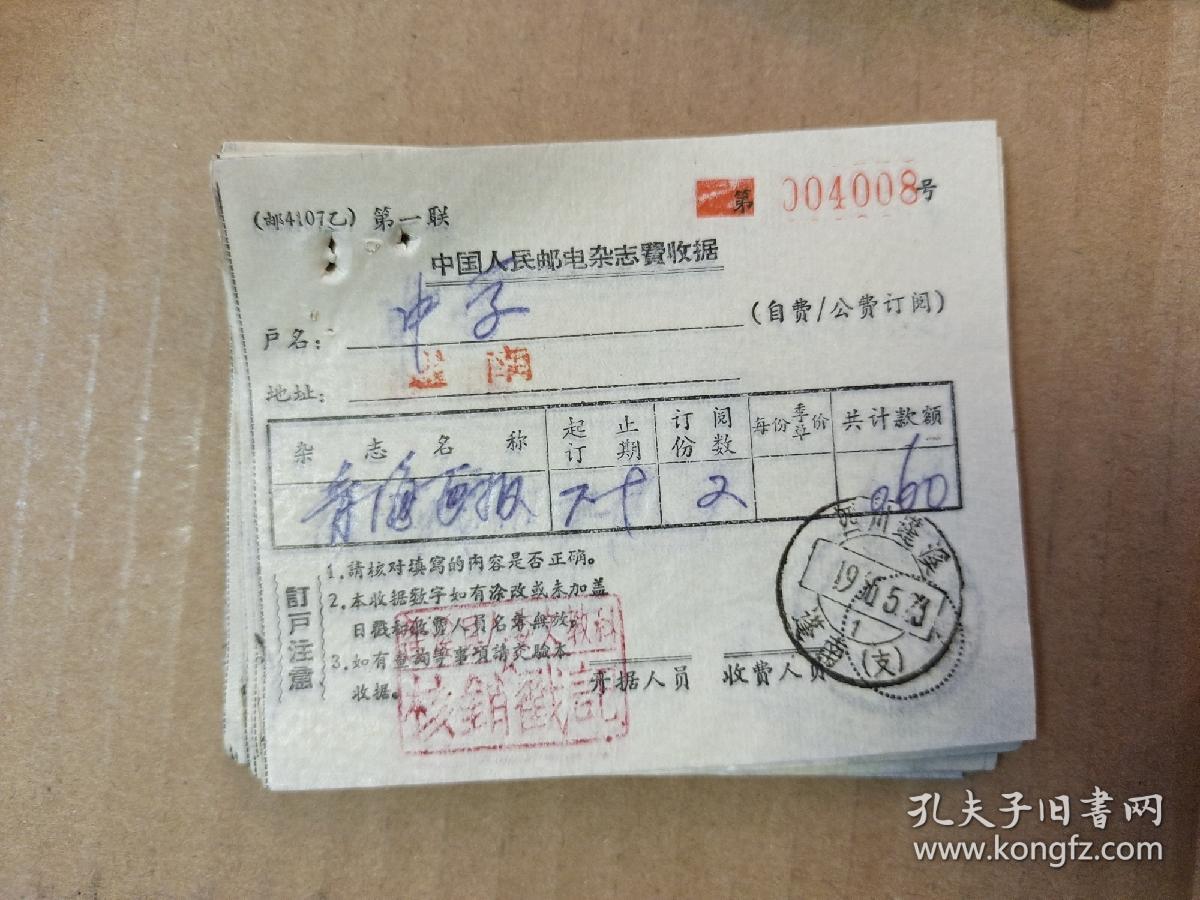 (邮4107乙) 第一联
第 004008号
中国人民邮电杂志費收据
户名： 中学 (自费/公费订阅)
地址： 蓬南
杂志名称 起止订期 订阅份数 每份季单价 共计款额
青海画报 7-9 2 060
訂戸注意
1.請核对填写的内容是否正确。
2.本收据数字如有涂改或未加盖
日戳和收费人員名章無效。
3.如有查詢等事項請交驗本
收据。
开据人员 收费人员
核銷戳記
四川蓬溪
5.23.1
蓬南(支)
孔夫子旧书网
www.kongfz.com